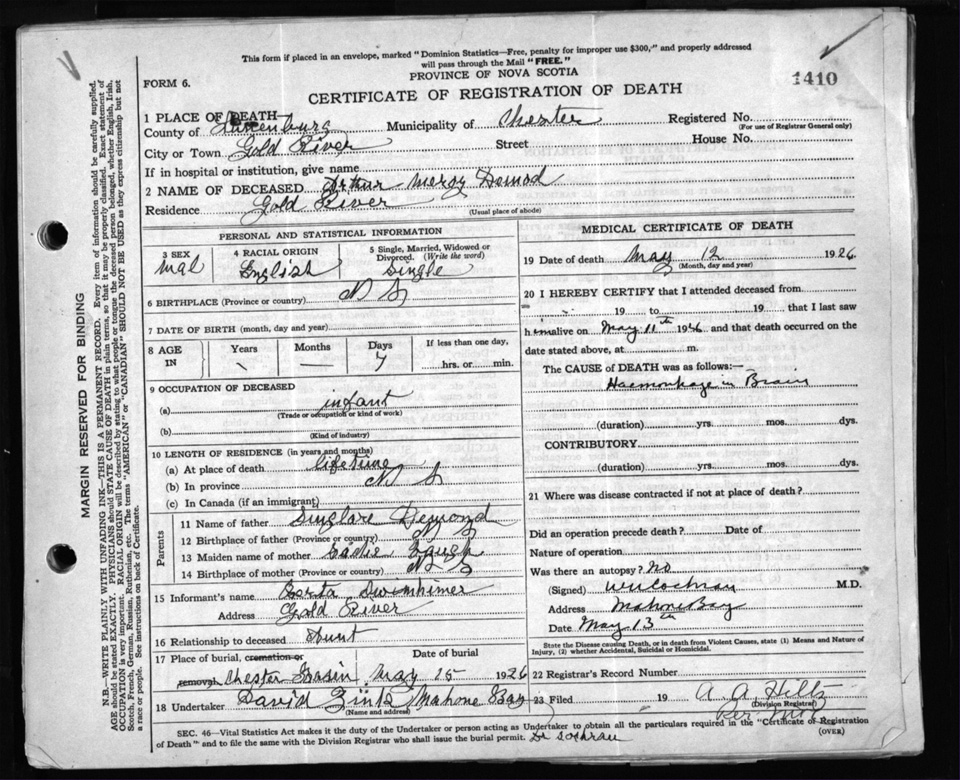 This form if placed in an envelope, marked "Dominion Statistics—Free, penalty for improper use $300," and properly addressed
will pass through the Mail "FREE."
PROVINCE OF NOVA SCOTIA
FORM 6.
1410
CERTIFICATE OF REGISTRATION OF DEATH
1 PLACE OF DEATH—
County of Lunenburg Municipality of Chester Registered No.
(For use of Registrar General only)
City or Town Gold River Street House No.
If in hospital or institution, give name
2 NAME OF DECEASED Arthur Demod
Residence Gold River
(Usual place of abode)
PERSONAL AND STATISTICAL INFORMATION
3 SEX 4 RACIAL ORIGIN 5 Single, Married, Widowed or
Divorced. (Write the word)
Mal English Single
6 BIRTHPLACE (Province or country) N S
7 DATE OF BIRTH (month, day and year)
8 AGE IN Years Months Days If less than one day,
7 hrs. or min.
9 OCCUPATION OF DECEASED
(a) infant
(Trade or occupation or kind of work)
(b)
(Kind of industry)
10 LENGTH OF RESIDENCE (in years and months)
(a) At place of death lifetime
(b) In province N S
(c) In Canada (if an immigrant)
Parents
11 Name of father Sinclare Demond
12 Birthplace of father (Province or country) N S
13 Maiden name of mother
14 Birthplace of mother (Province or country) N S
15 Informant's name
Address Gold River
16 Relationship to deceased Aunt
17 Place of burial, cremation or Date of burial
removal Chester Basin May 15 1926
18 Undertaker David Zinck Mahone Bay
(Name and address)
MEDICAL CERTIFICATE OF DEATH
19 Date of death May 12 1926
(Month, day and year)
20 I HEREBY CERTIFY that I attended deceased from
19 to 19 that I last saw
him alive on May 11th 1926 and that death occurred on
date stated above, at m.
The CAUSE of DEATH was as follows:—
Haemorrhage in Brain
(duration) yrs. mos. dys.
CONTRIBUTORY
(duration) yrs. mos. dys.
21 Where was disease contracted if not at place of death?
Did an operation precede death? Date of
Nature of operation
Was there an autopsy? No
(Signed) W Cochran M.D.
Address Mahone Bay
Date May 13th
State the Disease causing Death, or in death from Violent Causes, state (1) Means and Nature of
Injury, (2) whether Accidental, Suicidal or Homicidal.
22 Registrar's Record Number
23 Filed 19 A A Hiltz
(Division Registrar)
Per
SEC. 46—Vital Statistics Act makes it the duty of the Undertaker or person acting as Undertaker to obtain all the particulars required in the "Certificate of Registration
of Death" and to file the same with the Division Registrar who shall issue the burial permit. Dr Cochran (OVER)
MARGIN RESERVED FOR BINDING
N.B.—WRITE PLAINLY WITH UNFADING INK—THIS IS A PERMANENT RECORD. Every item of information should be carefully supplied.
AGE should be stated EXACTLY. PHYSICIANS should STATE CAUSE OF DEATH in plain terms, so that it may be properly classified. Exact statement of
OCCUPATION is very important. RACIAL ORIGIN will be described by stating to what people or tongue the deceased person belonged, whether English, Irish,
Scotch, French, German, Russian, Ruthenian, etc. The terms "AMERICAN" or "CANADIAN" SHOULD NOT BE USED as they express citizenship but not
a race or people. See instructions on back of Certificate.